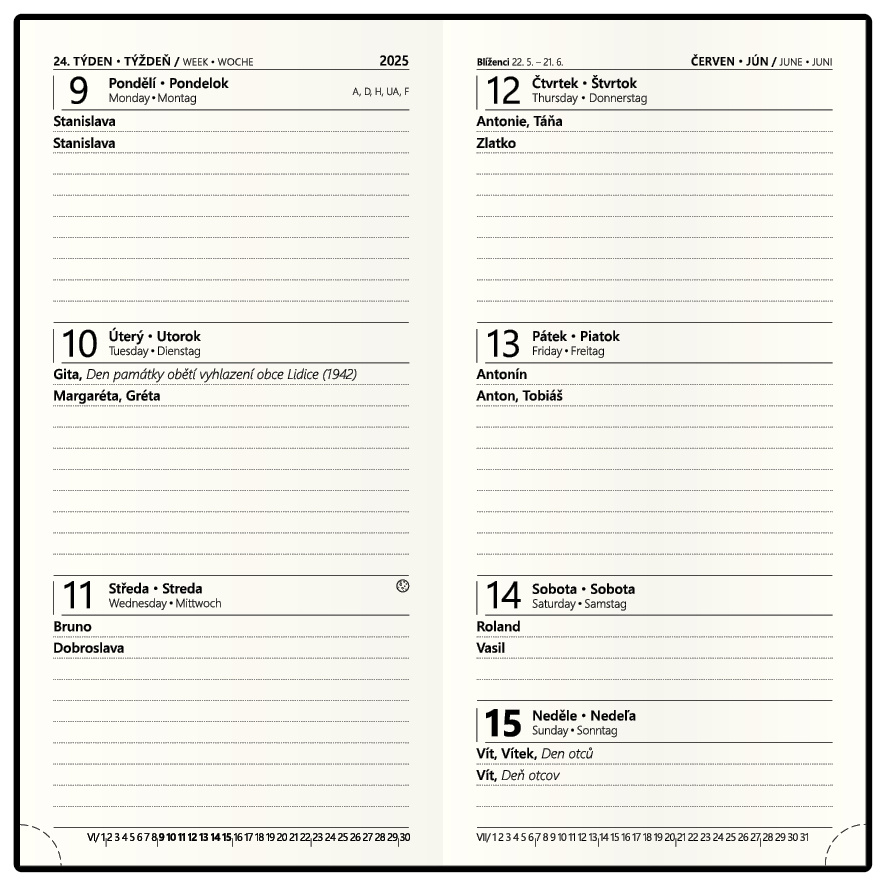 24. TÝDEN • TÝŽDEŇ / WEEK • WOCHE 2025
9 Pondělí • Pondelok
Monday • Montag
A, D, H, UA, F
Stanislava
Stanislava
10 Úterý • Utorok
Tuesday • Dienstag
Gita, Den památky obětí vyhlazení obce Lidice (1942)
Margaréta, Gréta
11 Středa • Streda
Wednesday • Mittwoch
Bruno
Dobroslava
VI/ 1 2 3 4 5 6 7 8 9 10 11 12 13 14 15 16 17 18 19 20 21 22 23 24 25 26 27 28 29 30
Blíženci 22. 5. – 21. 6. ČERVEN • JÚN / JUNE • JUNI
12 Čtvrtek • Štvrtok
Thursday • Donnerstag
Antonie, Táňa
Zlatko
13 Pátek • Piatok
Friday • Freitag
Antonín
Anton, Tobiáš
14 Sobota • Sobota
Saturday • Samstag
Roland
Vasil
15 Neděle • Nedeľa
Sunday • Sonntag
Vít, Vítek, Den otců
Vít, Deň otcov
VII/ 1 2 3 4 5 6 7 8 9 10 11 12 13 14 15 16 17 18 19 20 21 22 23 24 25 26 27 28 29 30 31